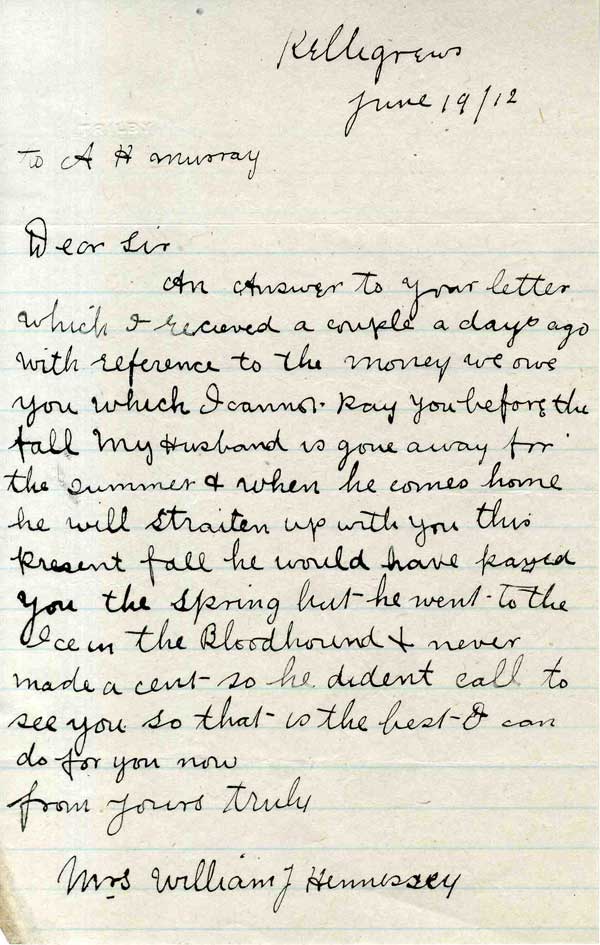 Kelligrews
June 19/12
To A H Murray
Dear Sir
An Answer to your letter
which I recieved a couple a days ago
with reference to the money we owe
you which I cannot pay you before the
fall My Husband is gone away for
the summer & when he comes home
he will straiten up with you this
present fall he would have payed
you the spring but he went to the
Ice in the Bloodhound & never
made a cent so he dident call to
see you so that is the best I can
do for you now
from yours truly
Mrs William J Hennessey